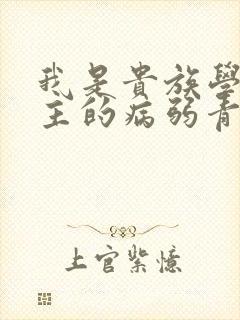 我是貴族學
主的病弱青
上官紫憶